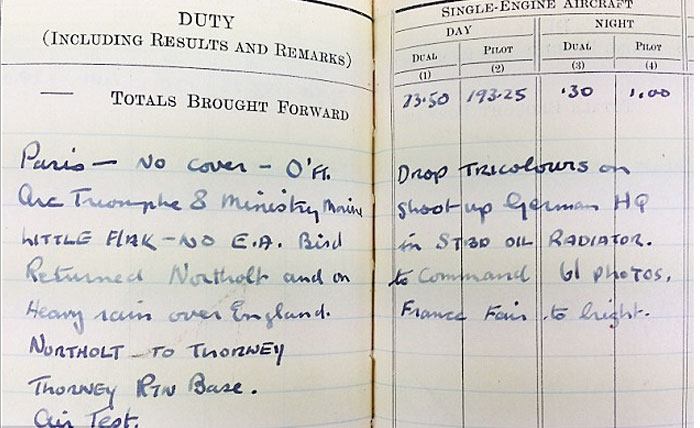 DUTY
(INCLUDING RESULTS AND REMARKS)
SINGLE-ENGINE AIRCRAFT
DAY NIGHT
DUAL PILOT DUAL PILOT
(1) (2) (3) (4)
— TOTALS BROUGHT FORWARD 73.50 193.25 .30 1.00
Paris — No cover — O'ft. Drop TRICOLOURS on
Arc Triomphe & Ministry Marine shoot up German HQ
LITTLE FLAK — NO E.A. Bird in STBD OIL RADIATOR.
Returned Northolt and on to Command 61 photos.
Heavy rain over England. France Fair to bright.
NORTHOLT TO THORNEY
THORNEY RTN BASE.
Air Test.